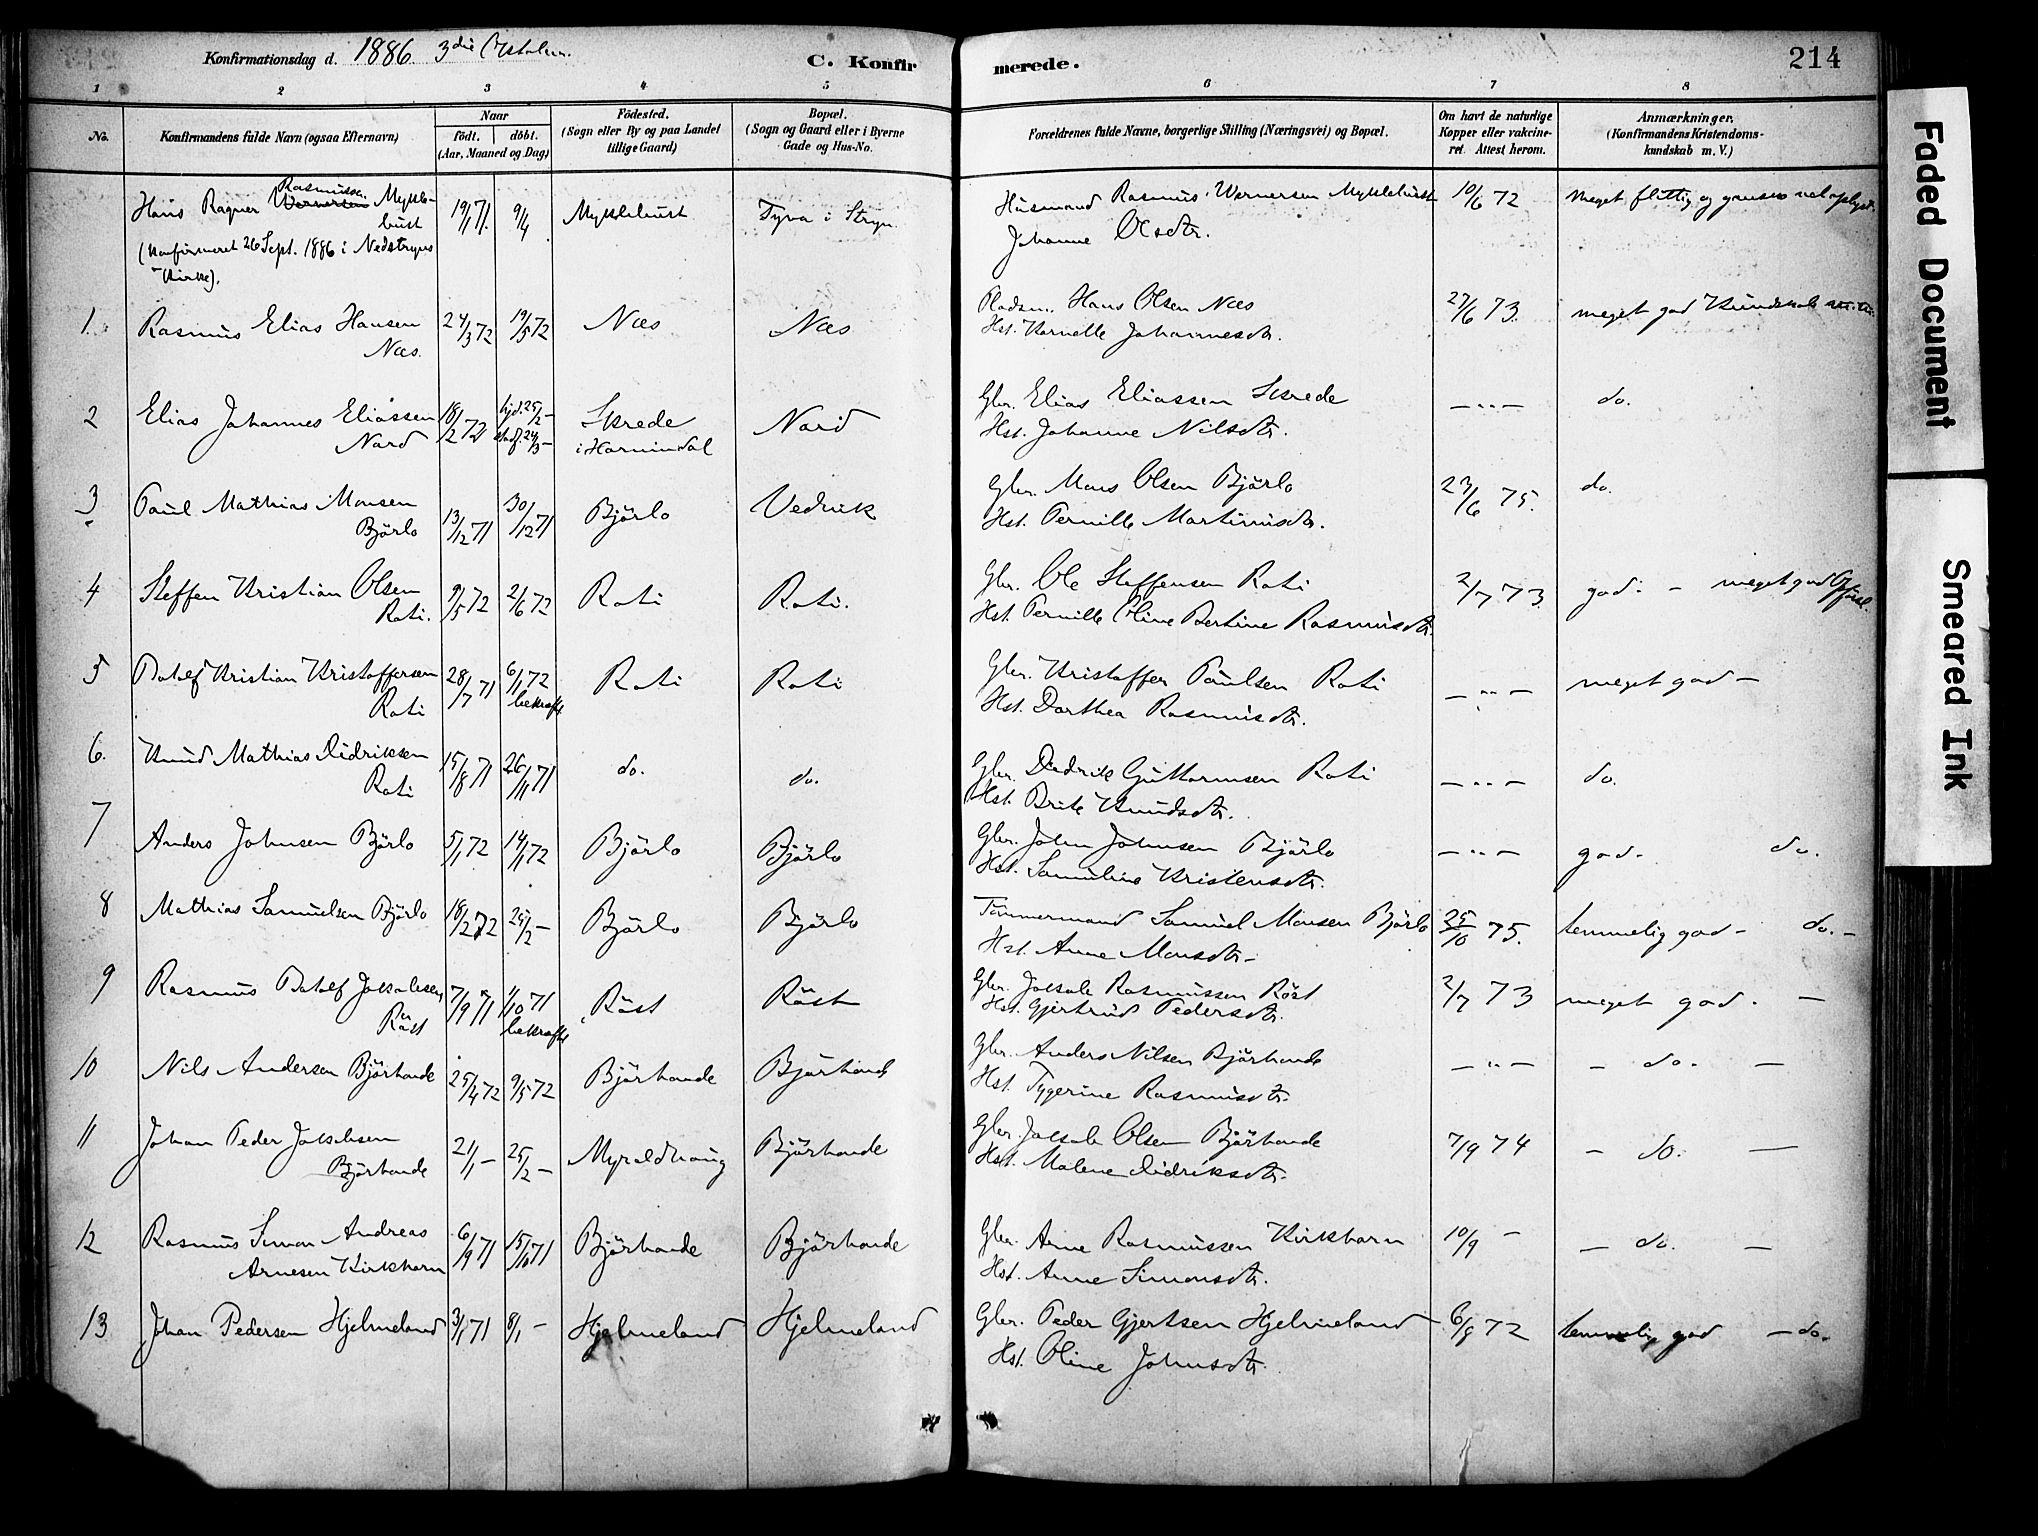 Konfirmationsdag d. 1886 3die
C. Konfirmerede.
214
1 2 3 4 5 6 7 8
No.
Konfirmandens fulde Navn (ogsaa Efternavn)
Naar
Födt. döbt.
(Aar, Maaned og Dag)
Födested.
(Sogn eller By og paa Landet
tillige Gaard)
Bopæl.
(Sogn og Gaard eller i Byerne
Gade og Hus-No.
Forældrenes fulde Navne, borgerlige Stilling (Næringsvei) og Bopæl.
Om havt de naturlige
Kopper eller vakcine-
ret. Attest herom.
Anmærkninger.
(Konfirmandens Kristendoms-
kundskab m. V.)
Rasmussen
Hans Ragner Wernersen Mykle- 19/1 71. 9/4 Myklebust Tyva i Stryn. Husmand Rasmus Wernersen Myklebust 10/6 72 meget flittig og
bust
Johanne Olsdtr.
(Konfirmeret 26 Sept. 1886 i Nedstryns
Kirke).
1. Rasmus Elias Hansen 24/3 72 19/5 72 Næs Næs Pladsm. Hans Olsen Næs 27/6 73. meget god Kundskab
Næs. Hst. Karnelle Johannesdtr.
2 Elias Johannes Eliassen 18/2 72 hjd. 25/2 - Skrede Nard Gbr. Elias Eliassen Skrede - " - do.
Nard stadf. 24/3 - i Hornindal Hst. Johanne Nilsdtr.
3 Paul Mathias Monsen 13/12 71 30/12 71 Björlo Vedvik Gbr. Mons Olsen Björlo 23/6 75. do.
Björlo Hst. Pernille Martinusdtr.
4 Steffen Kristian Olsen 9/5 72 2/6 72 Roti Roti. Gbr. Ole Steffensen Roti 2/7 73. god. - meget god
Roti. Hst. Pernille Oline Bertine Rasmusdtr.
5 Datolf Kristian Kristoffersen 28/7 71 6/1 72 Roti Roti Gbr. Kristoffer Paulsen Roti - " - meget god -
Roti bekræft. Hst. Dorthea Rasmusdtr.
6. Knud Mathias Didriksen 15/8 71 26/11 71 do. do. Gbr. Didrik Guttormsen Roti - " - do.
Roti Hst. Brite Knudsdtr.
7 Anders Johnsen Björlo 5/1 72 14/1 72 Björlo Björlo Gbr. John Johnsen Björlo - " - god - do.
Hst. Samuline Kristensdtr.
8 Mathias Samuelsen Björlo 18/2 72 25/2 - Björlo Björlo Tömmermand Samuel Monsen Björlo 25/10 75. temmelig god - do. -
Hst. Anne Monsdtr -
9 Rasmus Datolf Jakobsen 7/9 71 1/10 71 Röst Röst Gbr. Jakob Rasmussen Röst 2/7 73 meget god. -
Röst bekræft. Hst. Gjertrud Pedersdtr.
10 Nils Andersen Björhovde 25/4 72 9/5 72 Björhovde Björhovde Gbr. Anders Nilsen Björhovde - " - - do. -
Hst. Tygerine Rasmusdtr.
11 Johan Peder Jakobsen 21/1 - 25/2 - Myroldhaug Björhovde Gbr. Jakob Olsen Björhovde 7/9 74 - do. -
Björhovde Hst. Malene Didriksdtr.
12 Rasmus Simon Andreas 6/9 71 15/10 71 Björhovde Björhovde Gbr. Arne Rasmussen Kirkhorn 10/9 - - do. -
Arnesen Kirkhorn Hst. Anne Simonsdtr.
13 Johan Pedersen Hjelmeland 3/1 71 8/1 - Hjelmeland Hjelmeland Gbr. Peder Gjertsen Hjelmeland 6/9 72 temmelig god - do.
Hst. Oline Johnsdtr.
Faded Document
Smeared Ink